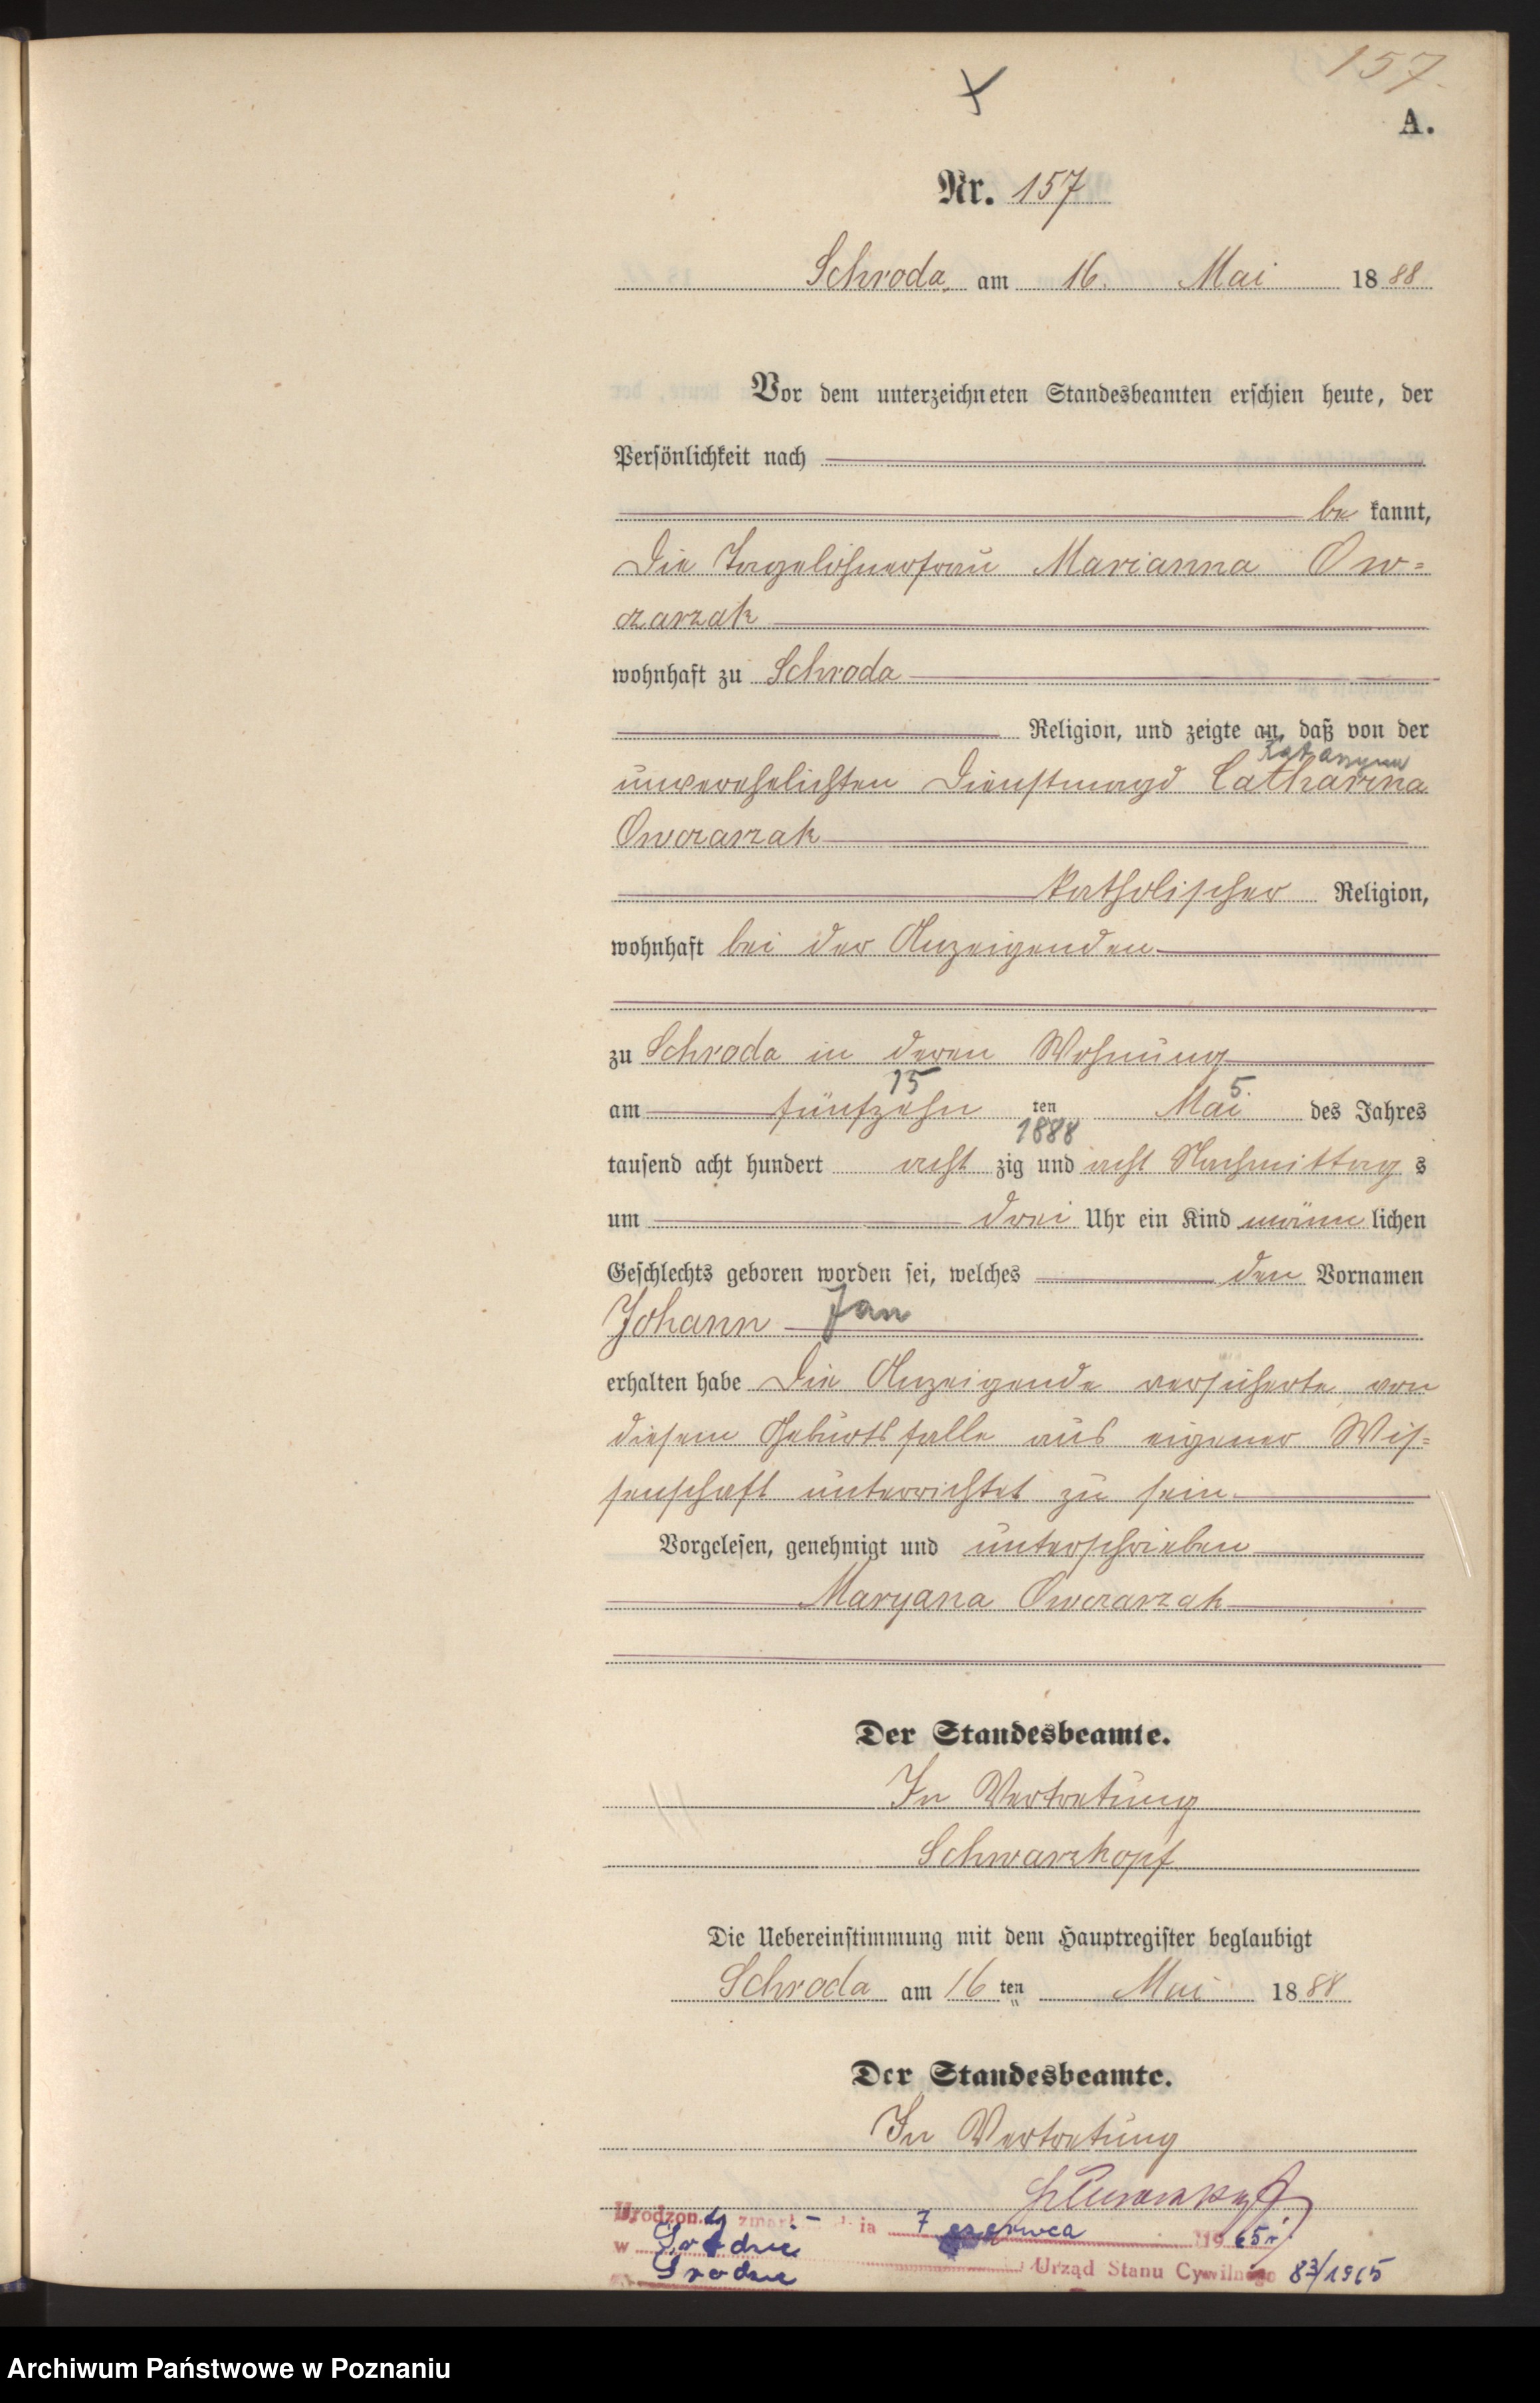 157.
A.
Nr. 157
Schroda, am 16. Mai 1888
Vor dem unterzeichneten Standesbeamten erschien heute, der
Persönlichkeit nach
be kannt,
die Tagelöhnerfrau Marianna Ow=
czarzak
wohnhaft zu Schroda
Religion, und zeigte an, daß von der
Katarzyna
unverehelichten Dienstmagd Catharina
Owczarzak
katholischer Religion,
wohnhaft bei der Anzeigenden
zu Schroda in deren Wohnung
15 5
am fünfzehn ten Mai des Jahres
1888
tausend acht hundert acht zig und acht Nachmittag s
um drei Uhr ein Kind männ lichen
Geschlechts geboren worden sei, welches den Vornamen
Johann Jan
erhalten habe Die Anzeigende versicherte, von
diesem Geburtsfalle aus eigener Wis=
senschaft unterrichtet zu sein.
Vorgelesen, genehmigt und unterschrieben
Maryana Owczarzak
Der Standesbeamte.
In Vertretung
Schwarzkopf
Die Uebereinstimmung mit dem Hauptregister beglaubigt
Schroda am 16 ten Mai 1888
Der Standesbeamte.
In Vertretung
Schwarzkopf
Urodzony zmarł dnia 7 czerwca 1965 r.
w Środzie
Środzie Urząd Stanu Cywilnego 83/1965
Archiwum Państwowe w Poznaniu